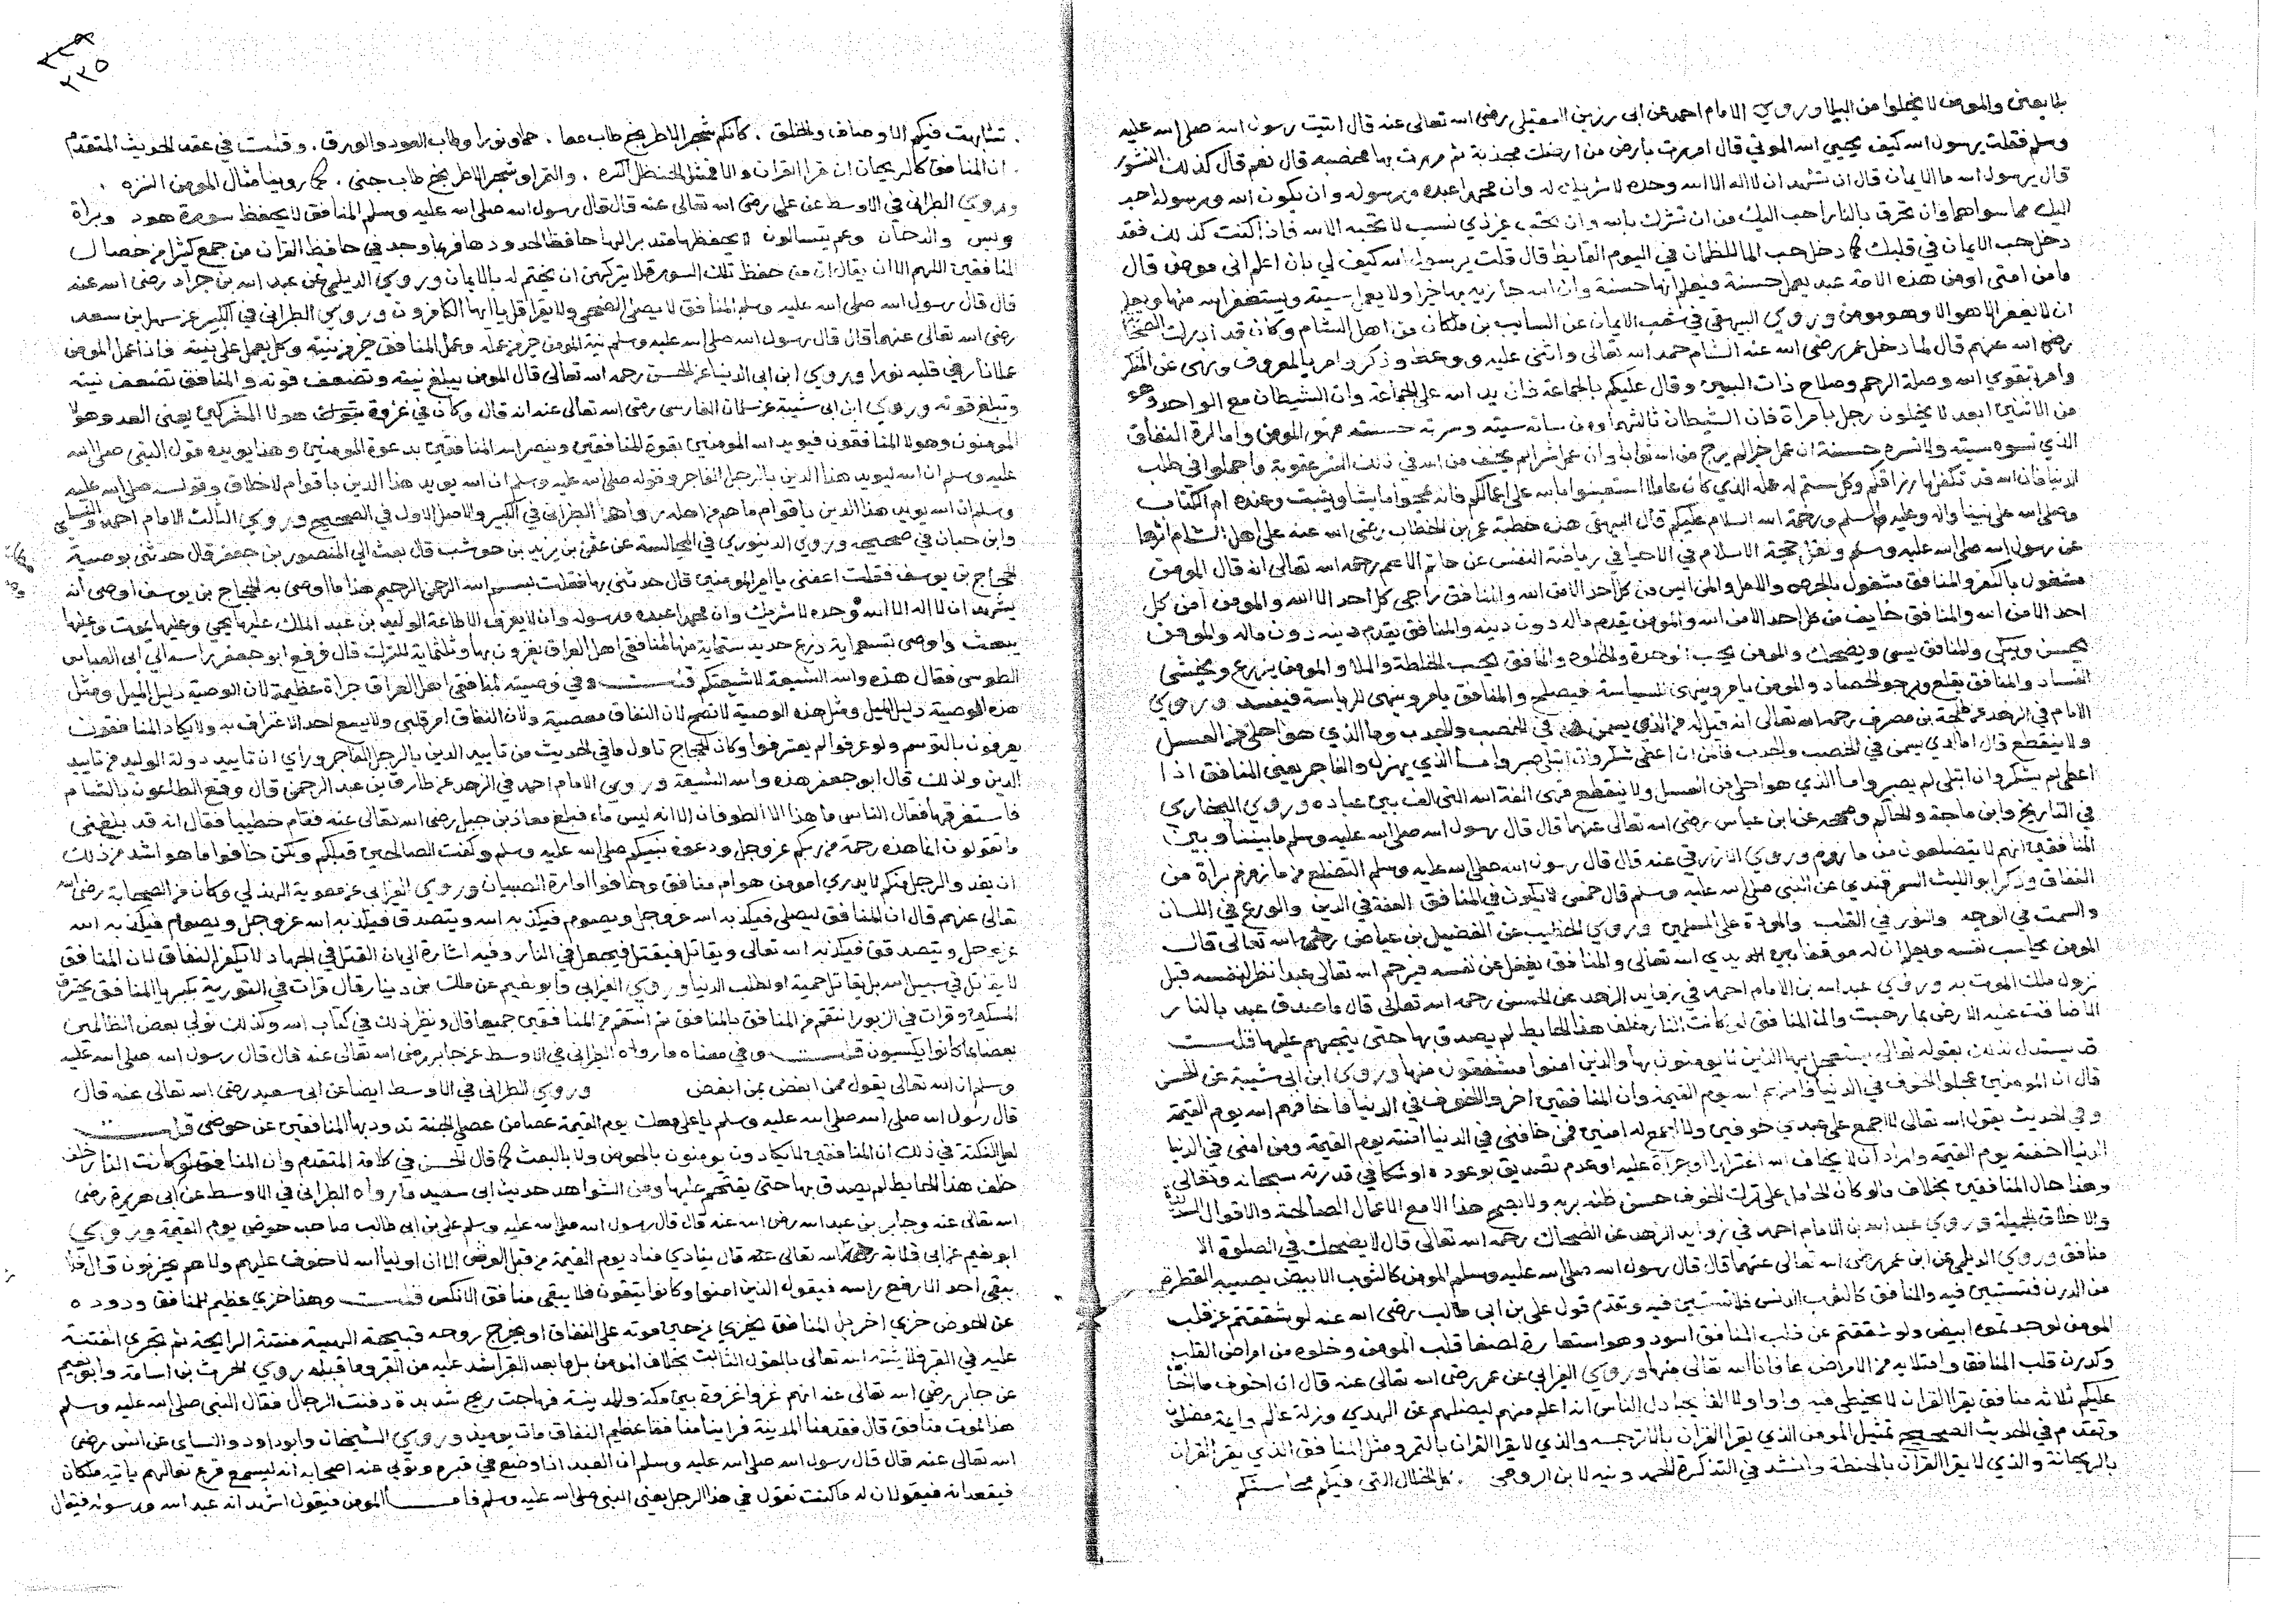 وسلم فقلت يرسول الله كيف يحيي الله الموتي قال امررت بارض من ارضك مجدبة ثم مررت بها مخصبه قال نعم قال كذلك النشور
قال يرسول الله ما الايمان قال ان تشهد ان لا اله الا الله وحده لا شريك له وان محمدا عبده ورسوله وان يكون الله ورسوله احب
اليك مما سواهما وان تحرق بالنار احب اليك من ان تشرك بالله وان تحب غير ذي نسب لا تحبه الا لله فاذا كنت كذلك فقد
دخل حب الايمان في قلبك كما دخل حب الما للظمان في اليوم القايظ قال قلت يرسول الله كيف لي بان اعلم اني مومن قال
ما من امتي او من هذه الامة عبد يعمل حسنة فيعلم انها حسنة وان الله جازيه بها خيرا ولا يعمل سيئة ويستغفر الله منها ويعلم
ان لا يغفر الا هو الا وهو مومن وروي البيهقي في شعب الايمان عن السايب بن ملكان من اهل الشام وكان قد ادرك الصحابة
رضي الله عنهم قال لما دخل عمر رضي الله عنه الشام حمد الله تعالى واثنى عليه ووعظ وذكر وامر بالمعروف ونهى عن المنكر
وامر بتقوي الله وصلة الرحم وصلاح ذات البين وقال عليكم بالجماعة فان يد الله على الجماعة وان الشيطان مع الواحد وهو
من الاثنين ابعد لا يخلون رجل بامراة فان الشيطان ثالثهما ومن ساته سيته وسرته حسنته فهو المومن وامارة النفاق
الذي لا تسوه سيته ولا تسره حسنة ان عمل خيرا لم يرج من الله ثوابا وان عمل شرا لم يخف من الله في ذلك الشر عقوبة واجملوا في طلب
الدنيا فان الله قد تكفل بارزاقكم وكل سيتم له عمله الذي كان عاملا استعينوا بالله على اعمالكم فانه يمحوا ما يشا ويثبت وعنده ام الكتاب
وصلى الله على نبينا واله وعليه والسلم ورحمة الله السلام عليكم قال البيهقي هذه خطبة عمر بن الخطاب رضي الله عنه على اهل الشام اثرها
عن رسول الله صلى الله عليه وسلم ونقل حجة الاسلام في الاحيا في رياضة النفس عن حاتم الاصم رحمه الله تعالى انه قال المومن
مشغول بالفكر والمنافق مشغول بالحرص والامل والمومن ايس من كل احد الا من الله والمنافق راجي كل احد الا الله والمومن امن كل
احد الا من الله والمنافق خايف من كل احد الا من الله والمومن يقدم ماله دون دينه والمنافق يقدم دينه دون ماله والمومن
يحسن ويبكي والمنافق يسي ويضحك والمومن يحب الوحدة والخلوه والمنافق يحب الخلطة والملا والمومن يزرع ويخشى
الفساد والمنافق يقلع ويرجو الحصاد والمومن يامر وينهى للسياسة فيصلح والمنافق يامر وينهى للرياسة فيفسد وروي
الامام في الزهد عن طلحة بن مصرف رحمه الله تعالى انه قيل له ما الذي يسمن في الخصب والجدب وما الذي هو احلى من العسل
ولا ينقطع قال اما الذي يسمن في الخصب والجدب فالمومن ان اعطي شكر وان ابتلي صبر واما الذي يهزل والفاجر يعني المنافق اذا
اعطي لم يشكر وان ابتلي لم يصبر واما الذي هو احلى من العسل ولا ينقطع فهي الفة الله التي الف بين عباده وروي البخاري
في التاريخ وابن ماجة والحاكم وصححه عن ابن عباس رضي الله تعالى عنهما قال قال رسول الله صلى الله عليه وسلم ما بيننا وبين
المنافقين انهم لا يتضلعون من ما زمزم وروي الازرقي عنه قال قال رسول الله صلى الله عليه وسلم التضلع من ما زمزم براة من
النفاق وذكر ابو الليث السمرقندي عن النبي صلى الله عليه وسلم قال خمس لا يكون في المنافق الفقه في الدين والورع في اللسان
والسمت في الوجه والنور في القلب والمودة على المسلمين وروي الخطيب عن الفضيل بن عياض رحمه الله تعالى قال
المومن يحاسب نفسه ويعلم ان له موقفا بين يدي الله تعالى والمنافق يغفل عن نفسه فرحم الله تعالى عبدا نظر لنفسه قبل
نزول ملك الموت به وروي عبد الله بن الامام احمد في زوايد الزهد عن الحسن رحمه الله تعالى قال ما صدق عبد بالنار
الا ضاقت عليه الارض بما رحبت وان المنافق لو كانت النار خلف هذا الحايط لم يصدق بها حتى يتجهم عليها قلت
قد يستدل لذلك بقوله تعالى يستعجل بها الذين لا يومنون بها والذين امنوا مشفقون منها وروي ابن ابي شيبة عن الحسن
قال ان المومنين عجلوا الخوف في الدنيا فامنهم الله يوم القيمة وان المنافقين اخروا الخوف في الدنيا فاخافهم الله يوم القيمة
وفي الحديث يقول الله تعالى لا اجمع على عبدي خوفين ولا اجمع له امنين فمن خافني في الدنيا امنته يوم القيمة ومن امنني في الدنيا
اخفته يوم القيمة
وهذا حال المنافقين بخلاف ما لو كان الحامل على ترك الخوف حسن ظنه بربه ولا يصح هذا الا مع الاعمال الصالحة والاقوال
والاخلاق الجميلة وروي عبد الله بن الامام احمد في زوايد الزهد عن الضحاك رحمه الله تعالى قال لا يضحك في الصلوة الا
منافق وروي الديلمي عن ابن عمر رضي الله تعالى عنهما قال قال رسول الله صلى الله عليه وسلم المومن كالثوب الابيض يصيبه القطرة
من الدرن فتستبين فيه والمنافق كالثوب الدنس فلا تستبين فيه وتقدم قول علي بن ابي طالب رضي الله عنه لو شققتم عن قلب
المومن لوجدتموه ابيض ولو شققتم عن قلب المنافق اسود وهو استعارة لصفا قلب المومن وخلوه من امراض القلب
وكدرن قلب المنافق وامتلايه من الامراض عافانا الله تعالى منها وروي الفريابي عن عمر رضي الله تعالى عنه قال ان اخوف ما اخاف
عليكم ثلاثه منافق يقرا القران لا يخطي فيه واوا ولا الفا يجادل الناس انه اعلم منهم ليضلهم عن الهدي وزلة عالم وايمة مضلون
وتقدم في الحديث الصحيح تمثيل المومن الذي يقرا القران بالاترجه والذي لا يقرا القران بالتمر ومثل المنافق الذي يقرا القران
بالريحانة والذي لا يقرا القران بالحنظلة وانشد في التذكرة الحمدونيه لابن الرومي كل الخلال التي فيكم محاسنكم
٢٣٥
تشابهت فيكم الاوصاف والخلق كانكم شجر الاترج طاب معا حملا ونورا وطاب العود والورق وقلت في عقد الحديث المتقدم
ان المنافق كالريحان ان قرا القران والا فمثل الحنظل اكره والتمر او شجر الاترج طاب جنى كما روينا مثال المومن النزه
وروي الطبراني في الاوسط عن علي رضي الله تعالى عنه قال قال رسول الله صلى الله عليه وسلم المنافق لا يحفظ سورة هود وبراة
ويس والدخان وعم يتسالون
المنافقين اللهم الا ان يقال ان من حفظ تلك السورة
قال قال رسول الله صلى الله عليه وسلم المنافق لا يصلي الضحى ولا يقرا قل يا ايها الكافرون وروي الطبراني في الكبير عن سهل بن سعد
رضي الله تعالى عنهما قال قال رسول الله صلى الله عليه وسلم نية المومن خير من عمله وعمل المنافق خير من نيته وكل يعمل على نيته فاذا عمل المومن
عملا نار في قلبه نورا وروي ابن ابي الدنيا عن الحسن رحمه الله تعالى قال المومن يبلغ نيته وتضعف قوته والمنافق تضعف نيته
وتبلغ قوته وروي ابن ابي شيبة عن سلمان الفارسي رضي الله تعالى عنه انه قال وكان في غزوة هولا المشركين يعني العدو وهولا
المومنون وهولا المنافقون فيويد الله المومنين بقوة المنافقين وينصر الله المنافقين بدعوة المومنين وهذا يويده قول النبي صلى الله
عليه وسلم ان الله ليويد هذا الدين بالرجل الفاجر وقوله صلى الله عليه وسلم ان الله يويد هذا الدين باقوام لا خلاق وقوله صلى الله عليه
وسلم ان الله يويد هذا الدين باقوام ما هم من اهله رواهما الطبراني في الكبير والاصل الاول في الصحيح وروي الثالث الامام احمد
وابن حبان في صحيحه وروي الدينوري في المجالسة عن بن يزيد بن حوشب قال بعث الي المنصور بن جعفر قال حدثني بوصية
الحجاج بن يوسف فقلت اعفني يا امير المومنين قال حدثني بها فقلت بسم الله الرحمن الرحيم هذا ما اوصى به الحجاج بن يوسف اوصى انه
يشهد ان لا اله الا الله وحده لا شريك وان محمدا عبده ورسوله وان لا يعرف الا طاعة الوليد بن عبد الملك عليها يحيى وعليها يموت وعليها
يبعث واوصى بتسعماية درع حديد ستماية منها لمنافقي اهل العراق يغزون بها وثلثماية للترك قال فرفع ابو جعفر راسه الى ابي العباس
الطوسي فقال هذه والله الشيعة لا شيعتكم قلت وفي وصيته لمنافقي اهل العراق جراة عظيمة لان الوصية دليل الميل ومثل
هذه الوصية لا تصح لان النفاق معصية ولان النفاق امر قلبي ولا يسع احد الاعتراف به ولا يكاد المنافقون
يعرفون بالتوسم ولو عرفوا لم يعترفوا وكان الحجاج تاول ما في الحديث من تاييد الدين بالرجل الفاجر وراي ان تاييد دولة الوليد من تاييد
الدين ولذلك قال ابو جعفر هذه والله الشيعة وروي الامام احمد في الزهد عن طارق بن عبد الرحمن قال وقع الطاعون بالشام
فاستعر فيها فقال الناس ما هذا الا الطوفان الا انه ليس ماء فبلغ معاذ بن جبل رضي الله تعالى عنه فقام خطيبا فقال انه قد بلغني
ما تقولون انما هذه رحمة من ربكم عز وجل ودعوة نبيكم صلى الله عليه وسلم وكفت الصالحين قبلكم ولكن خافوا ما هو اشد من ذلك
ان يغدو الرجل منكم لا يدري امومن هو ام منافق وخافوا امارة الصبيان وروي الفريابي عن معوية الهذلي وكان من الصحابة رضي الله
تعالى عنهم قال ان المنافق ليصلي فيكذبه الله عز وجل ويصوم فيكذبه الله ويتصدق فيكذبه الله عز وجل
عز وجل ويتصدق فيكذبه الله تعالى ويقاتل فيقتل فيجعل في النار وفيه اشارة الى ان القتل في الجهاد لا يكفر النفاق لان المنافق
لا يقاتل في سبيل الله بل يقاتل حمية او لطلب الدنيا وروي الفريابي وابو نعيم عن ملك بن دينار قال قرات في التورية
وقرات في الزبور انتقم من المنافق بالمنافق ثم انتقم من المنافقين جميعا قال ونظير ذلك في كتاب الله وكذلك نولي بعض الظالمين
بعضا بما كانوا يكسبون قلت وفي معناه ما رواه الطبراني في الاوسط عن جابر رضي الله تعالى عنه قال قال رسول الله صلى الله عليه
وسلم ان الله تعالى يقول ممن ابغض بمن ابغض وروي الطبراني في الاوسط ايضا عن ابي سعيد رضي الله تعالى عنه قال
قال رسول الله صلى الله عليه وسلم يا علي معك يوم القيمة عصا من عصي الجنة تذود بها المنافقين عن حوضي قلت
لعل النكتة في ذلك ان المنافقين لا يكادون يومنون بالحوض ولا بالبعث كما قال الحسن في كلامه المتقدم وان المنافق لو كانت النار خلف
خلف هذا الحايط لم يصدق بها حتى يقتحم عليها ومن الشواهد حديث ابي سعيد ما رواه الطبراني في الاوسط عن ابي هريرة رضي
الله تعالى عنه وجابر بن عبد الله رضي الله عنه قال قال رسول الله صلى الله عليه وسلم علي بن ابي طالب صاحب حوضي يوم القيمة وروي
ابو نعيم عن ابي قلابة رحمه الله تعالى قال ينادي مناد يوم القيمة من قبل العرش الا ان اوليا الله لا خوف عليهم ولا هم يحزنون قال فلا
يبقى احد الا رفع راسه فيقول الذين امنوا وكانوا يتقون فلا يبقى منافق الا نكس قلت وهذا خزي عظيم للمنافق وردوده
عن الحوض خزي اخر بل المنافق يخزي من حين موته على النفاق او يخرج روحه قبيحة الهيية منتنة الرايحة ثم يخزي الفتنة
عليه في القبر فلا يثبته الله تعالى بالقول الثابت بخلاف المومن بل ما بعد القبر اشد عليه من القبر وما قبله روي الحرث بن اسامة وابو نعيم
عن جابر رضي الله تعالى عنه انهم غزوا غزوة بين مكة والمدينة فهاجت ريح شديدة دفنت الرجال فقال النبي صلى الله عليه وسلم
هذا لموت منافق قال فقدمنا المدينة فراينا منافقا عظيم النفاق مات يوميذ وروي الشيخان وابو داود والنساي عن انس رضي
الله تعالى عنه قال قال رسول الله صلى الله عليه وسلم ان العبد اذا وضع في قبره وتولي عنه اصحابه انه ليسمع قرع نعالهم ياتيه ملكان
فيقعدانه فيقولان له ما كنت تقول في هذا الرجل يعني النبي صلى الله عليه وسلم فاما المومن فيقول اشهد انه عبد الله ورسوله فيقال